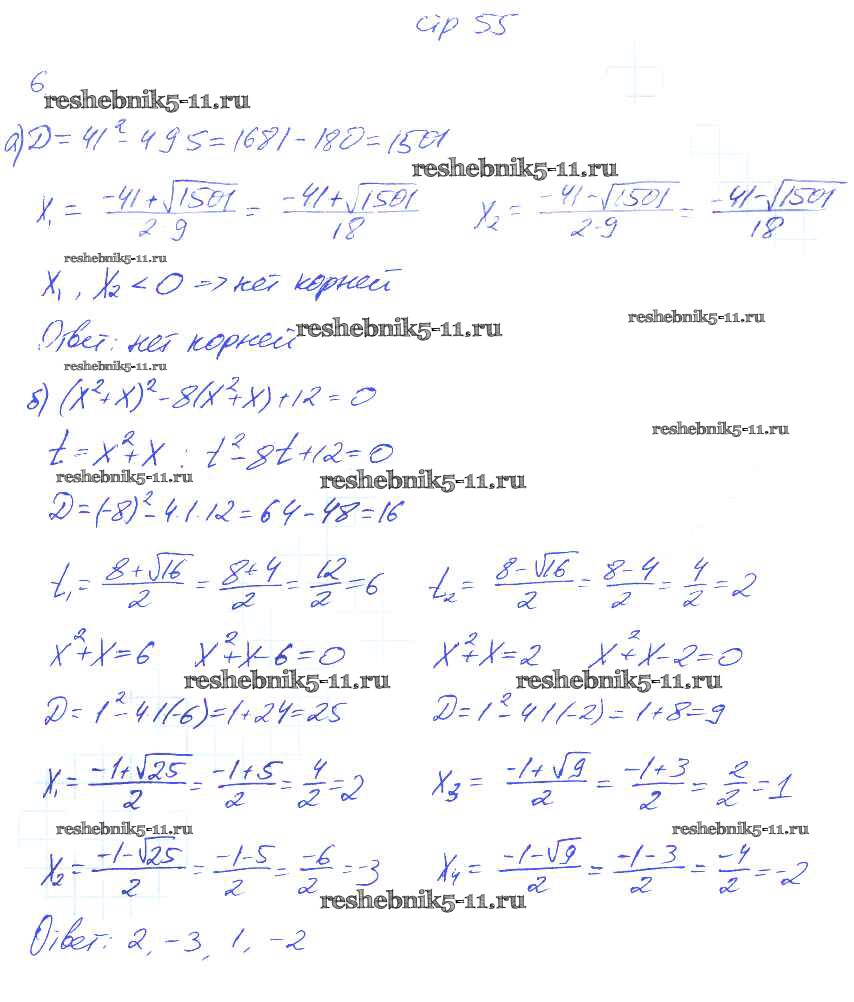 стр 55
6
reshebnik5-11.ru
а) D = 41² - 4 9 5 = 1681 - 180 = 1501
reshebnik5-11.ru
x₁ = (-41+√1501)/(2 9) = (-41+√1501)/18   x₂ = (-41-√1501)/(2·9) = (-41-√1501)/18
reshebnik5-11.ru
x₁, x₂ < 0 => нет корней
reshebnik5-11.ru
Ответ: нет корней reshebnik5-11.ru
reshebnik5-11.ru
б) (x²+x)² - 8(x²+x) + 12 = 0
reshebnik5-11.ru
t = x²+x : t² - 8t + 12 = 0
reshebnik5-11.ru reshebnik5-11.ru
D = (-8)² - 4·1·12 = 64 - 48 = 16
t₁ = (8+√16)/2 = (8+4)/2 = 12/2 = 6   t₂ = (8-√16)/2 = (8-4)/2 = 4/2 = 2
x²+x=6   x²+x-6=0   x²+x=2   x²+x-2=0
reshebnik5-11.ru reshebnik5-11.ru
D = 1² - 4 1(-6) = 1+24 = 25   D = 1² - 4 1(-2) = 1+8 = 9
x₁ = (-1+√25)/2 = (-1+5)/2 = 4/2 = 2   x₃ = (-1+√9)/2 = (-1+3)/2 = 2/2 = 1
reshebnik5-11.ru reshebnik5-11.ru
x₂ = (-1-√25)/2 = (-1-5)/2 = -6/2 = -3   x₄ = (-1-√9)/2 = (-1-3)/2 = -4/2 = -2
reshebnik5-11.ru
Ответ: 2, -3, 1, -2